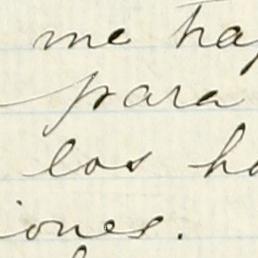 me ha
para
los ho
iones.